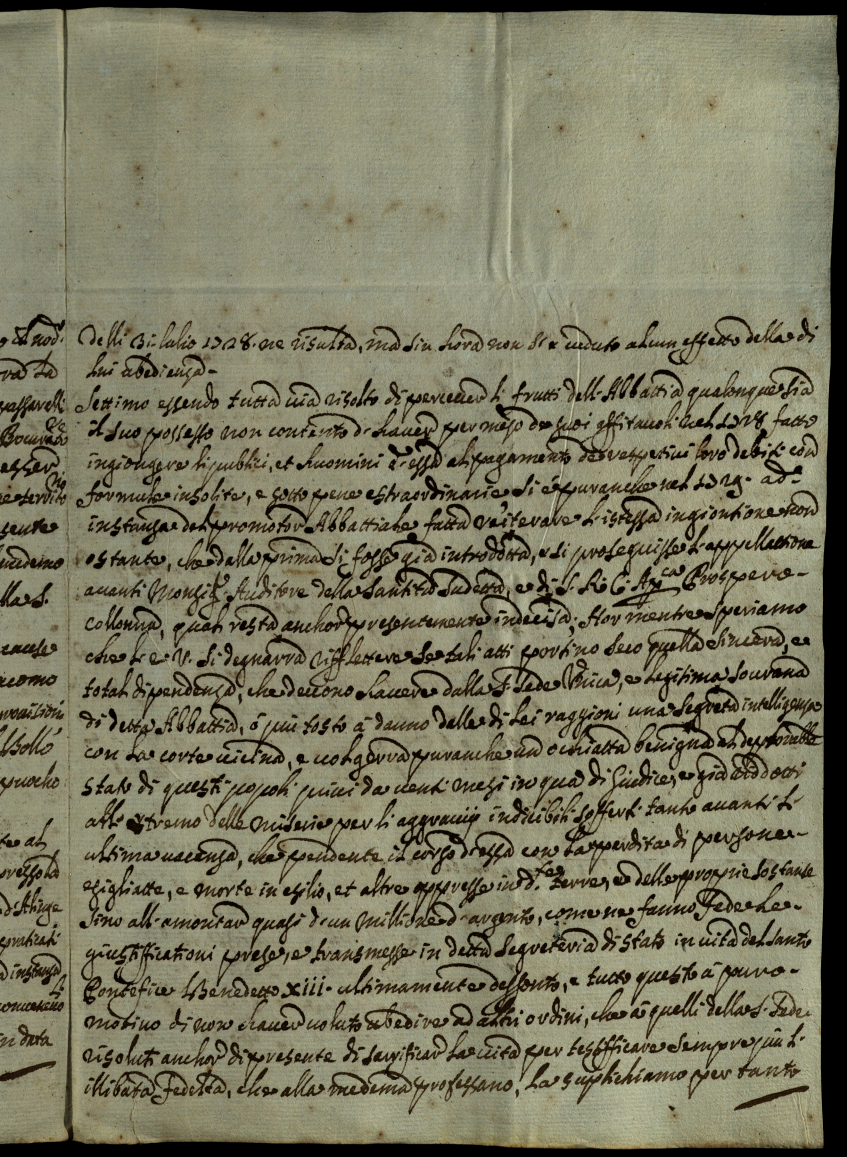 delli 31: lulio 1728. ne risulta, ma sin hora non s'è veduto alcun effetto della di
lui ubedienza.
Settimo essendo tutta via risolto di percever li frutti dell'Abbattia qualonque sia
il suo possesso non contento d'haver per mezo de suoi affitavoli nel 1728 fatto
ingiongere li publici, et huomini d'essa al pagamento de respettivi loro debiti con
formule insolite, e sotto pene estraordinarie si è puranche nel 1729. ad
instanza del promotor Abbattiale fatta reiterare l'istessa ingiontione non
ostante, che dalla prima si fosse già introdotta, e si proseguisse l'appellattione
avanti Monsig.r Auditore della Santità sudetta, e di S. R. C. Ap.ca Prospero
Collonna, qual resta anchor presentemente indecisa; Hor mentre speriamo
che l'E. V. si degnarrà rifflettere se tali atti portino seco quella sincera, e
total dipendenza, che devono havere dalla S. Sede Unica, e legitima sovrana
di detta Abbattia, ò più tosto à danno delle di lei raggioni una segreta intelligenza
con la corte vicina, e volgerrà puranche un occhiatta benigna al deplorabile
stato di questi popoli privi da venti mesi in qua di Giudice, e già ridotti
all'estremo delle miserie per li aggravij indicibili sofferti tanto avanti l'
ultima vacanza, che pendente il corso d'essa con la perdita di persone
esigliatte, e morte in esilio, et altre oppresse in d.te terre, e delle proprie sostanze
sino all'amontar quasi d'un millione d'argento, come ne fanno Fede le
giustifficationi prese, e transmesse in detta Segreteria di Stato in vita del santo
Pontefice Benedetto XIII. ultimamente deffonto, e tutto questo à puro
motivo di non haver voluto ubedire ad altri ordini, che à quelli della S. Sede
risoluti anchor di presente di sacrificar la vita per testifficare sempre più l'
illibata Fedeltà, che alla medema professano, la suplichiamo per tanto